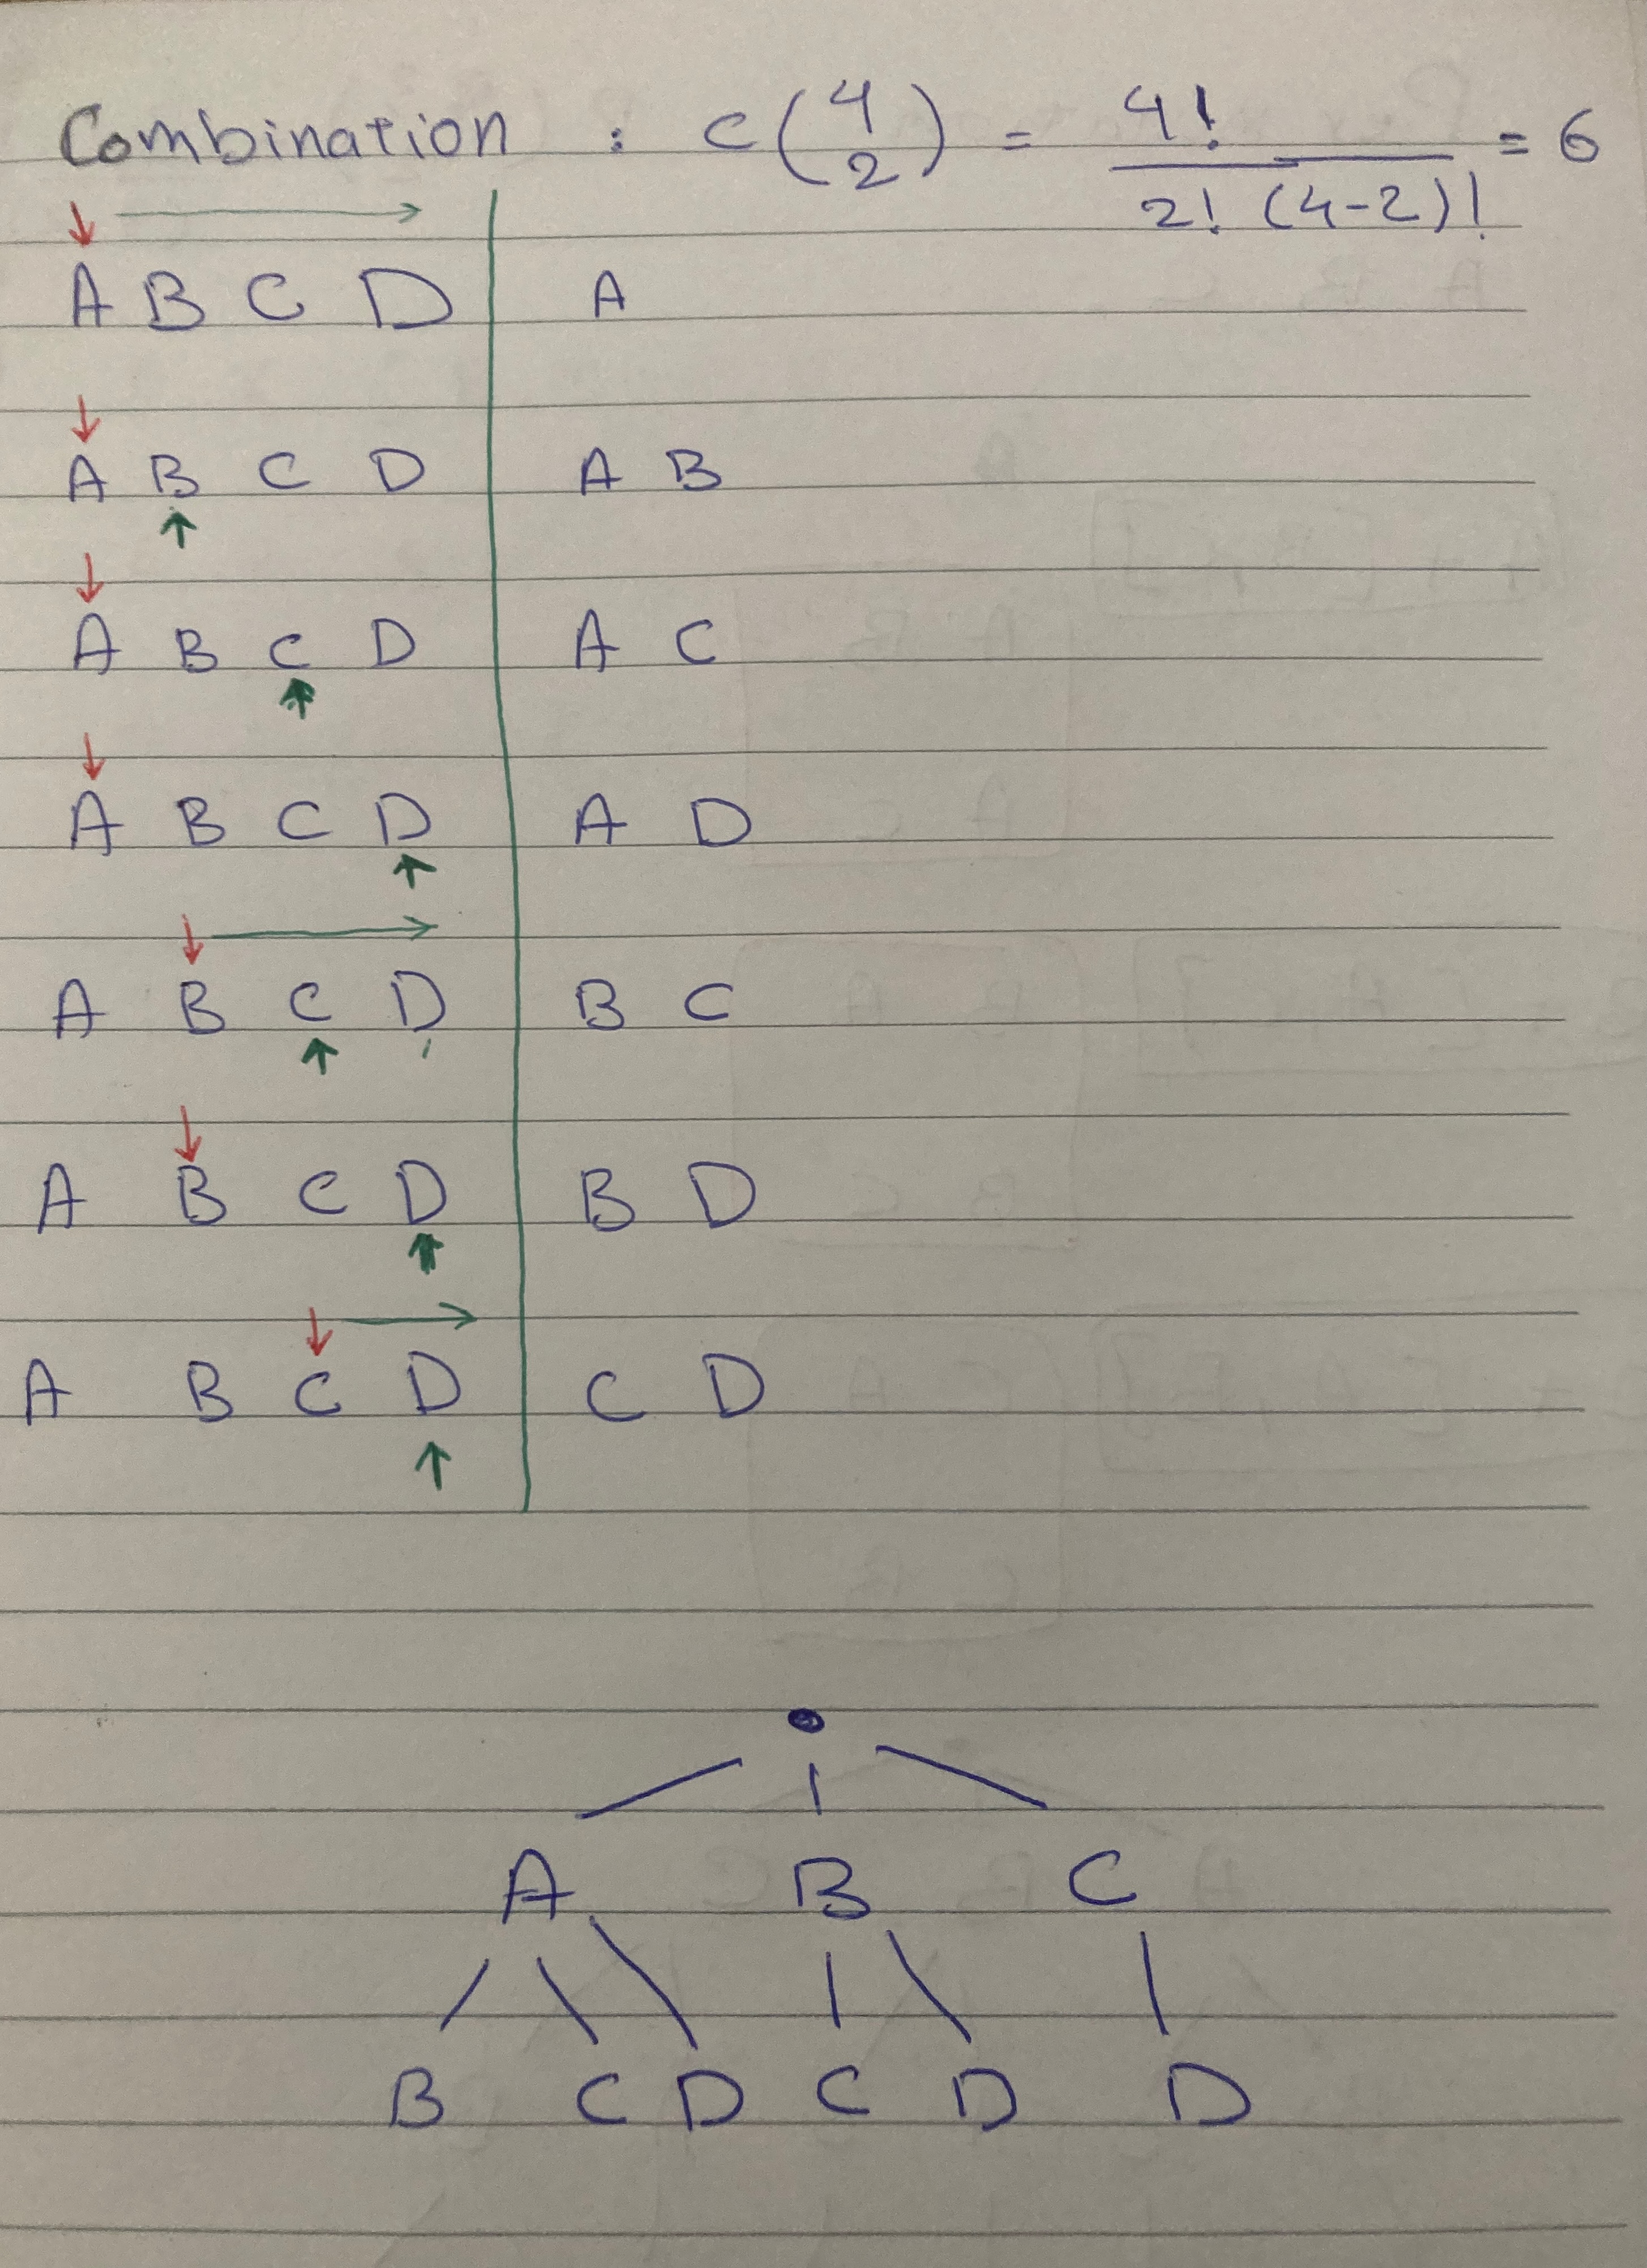 Combination : C(4 2) = 4! / 2! (4-2)! = 6
A B C D A
A B C D A B
A B C D A C
A B C D A D
A B C D B C
A B C D B D
A B C D C D
A B C
B C D C D D